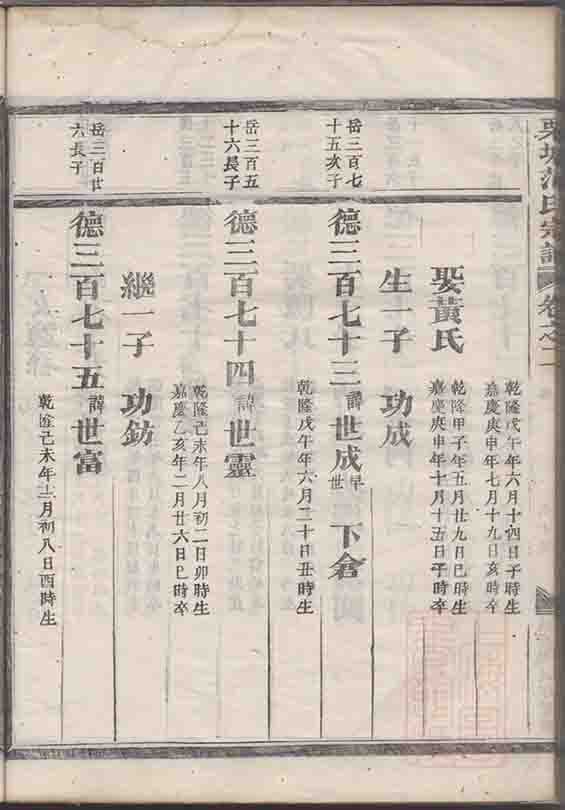 栗城范氏宗譜 卷之二
乾隆戊午年六月十四日子時生
嘉慶庚申年七月十九日亥時卒
娶黃氏
乾隆甲子年五月廿九日巳時生
嘉慶庚申年十月十五日子時卒
生一子 功成
岳三百七
十五次子
德三百七十三 諱世成 早世 下倉
乾隆戊午年六月二十日丑時生
岳三百五
十六長子
德三百七十四 諱世靈
乾隆己未年八月初二日卯時生
嘉慶乙亥年二月廿六日巳時卒
繼一子 功鈁
岳三百廿
六長子
德三百七十五 諱世富
乾隆己未年十一月初八日酉時生